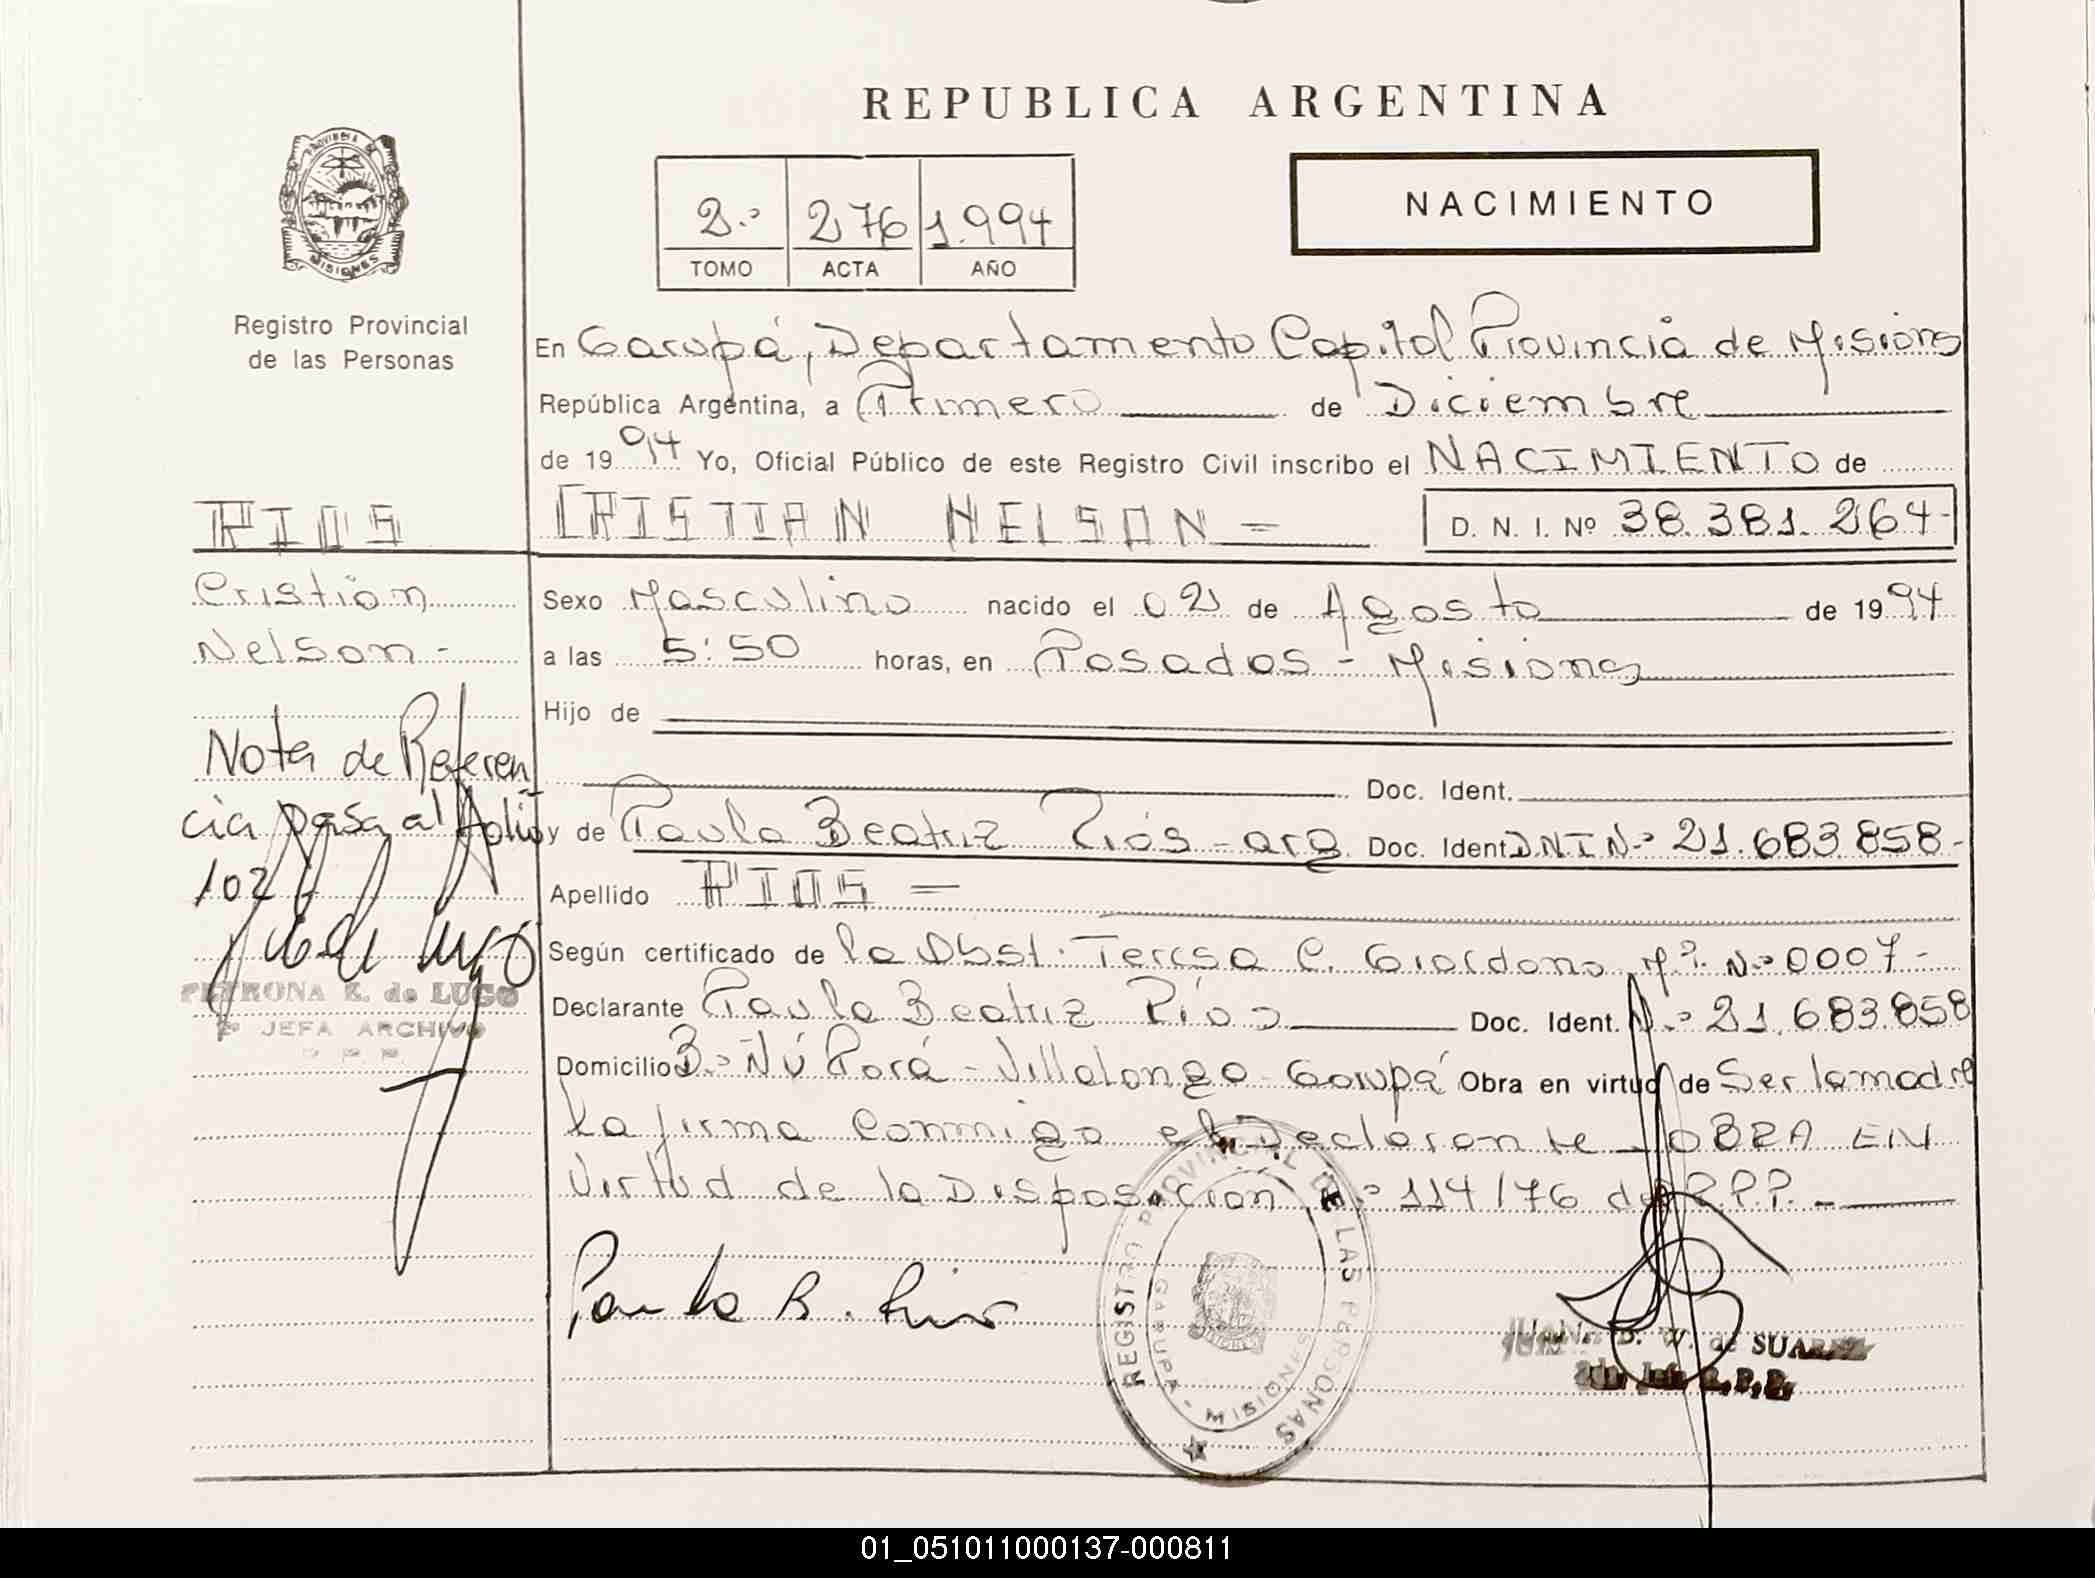 REPUBLICA ARGENTINA
PROVINCIA DE
MISIONES
2.º 276 1.994
TOMO ACTA AÑO
NACIMIENTO
Registro Provincial
de las Personas
En Garupá, Departamento Capital Provincia de Misiones
República Argentina, a Primero de Diciembre
de 1994 Yo, Oficial Público de este Registro Civil inscribo el NACIMIENTO de
RIOS CRISTIAN NELSON = D. N. I. Nº 38.381.264-
Cristian
Nelson -
Sexo Masculino nacido el 02 de Agosto de 1994
a las 5:50 horas, en Posadas - Misiones
Hijo de
Doc. Ident.
y de Paula Beatriz Ríos - arg Doc. Ident DNI Nº 21.683.858-
Apellido RIOS =
Según certificado de la Obst. Teresa C. Giordano Mº. Nº 0007-
Declarante Paula Beatriz Ríos Doc. Ident. Nº 21.683.858
Domicilio Bº Ñú Porá - Villalonga - Garupá Obra en virtud de Ser la madre
La firma Conmigo el Declarante - OBRA EN
Virtud de la Disposición Nº 114/76 del R.P.P. -
Nota de Referen
cia pasa al folio
102
PETRONA E. de LUGO
JEFA ARCHIVO
R P P
Paula B. Rios
REGISTRO PROVINCIAL DE LAS PERSONAS
GARUPA - MISIONES
JUANA B. W. de SUAREZ
R.P.P.
01_051011000137-000811